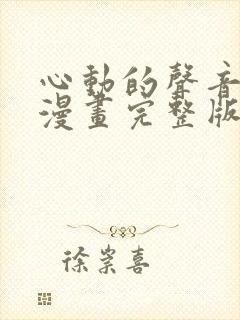 心動的聲音
漫畫完整版
徐崇喜